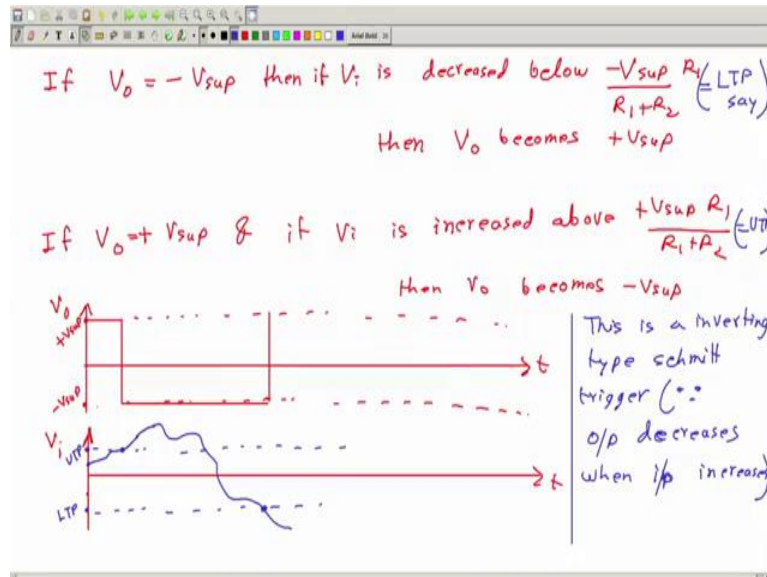 Arial Bold
If V₀ = - Vsup then if Vi is decreased below -Vsup R₁ / R₁+R₂ (= LTP say)
then V₀ becomes +Vsup
If V₀ = + Vsup & if Vi is increased above +Vsup R₁ / R₁+R₂ (=UTP
then V₀ becomes -Vsup
V₀
+Vsup
t
-Vsup
Vi
UTP
t
LTP
This is a inverting
type schmitt
trigger (∵
o/p decreases
when i/p increases)